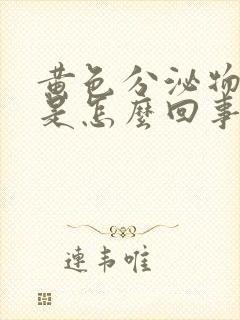 黄色分泌物
是怎麼回事
連韦唯